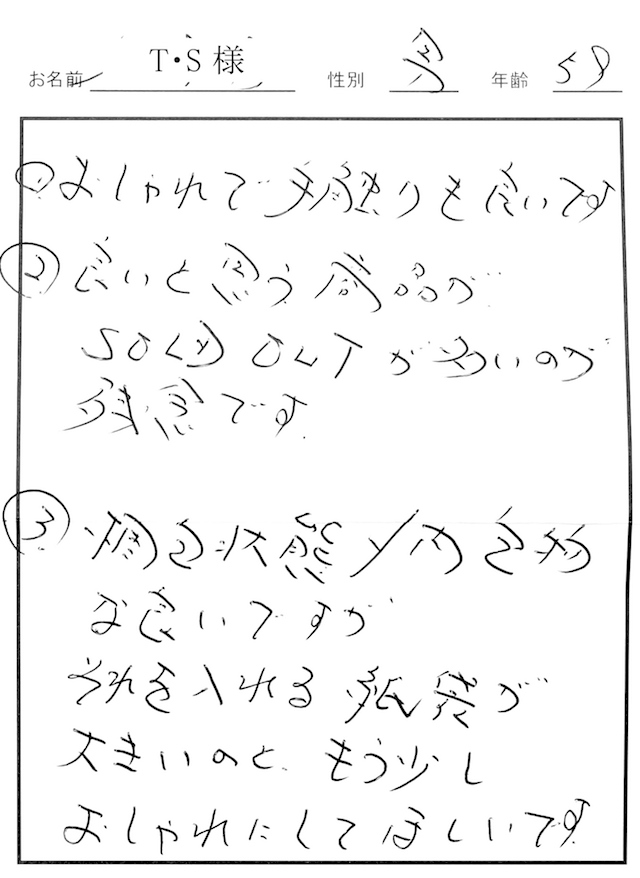 お名前 T・S様 性別 男 年齢 58
① おしゃれで手触りも良いです
② 良いと思う商品が
SOLD OUTが多いのが
残念です.
③ 梱包状態や内包物
は良いですが
それを入れる紙袋が
大きいのと、もう少し
おしゃれにしてほしいです